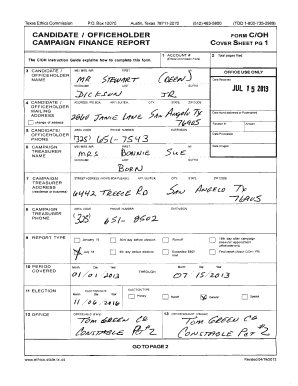 Texas Ethics Commission P.O. Box 12070 Austin, Texas 78711-2070 (512) 463-5800 (TDD 1-800-735-2989)
CANDIDATE / OFFICEHOLDER CAMPAIGN FINANCE REPORT
FORM C/OH
COVER SHEET PG 1
The C/OH Instruction Guide explains how to complete this form.
1 ACCOUNT #
2 Total pages filed:
3 CANDIDATE / OFFICEHOLDER NAME
MS / MRS / MR FIRST MI
MR STEWART (DEEN)
NICKNAME LAST SUFFIX
DICKSON JR.
OFFICE USE ONLY
Date Received
JUL 15 2013
4 CANDIDATE / OFFICEHOLDER MAILING ADDRESS
change of address
ADDRESS / PO BOX; APT / SUITE #; CITY; STATE; ZIP CODE
JANIE LANE SAN ANGELO TX
76905
5 CANDIDATE / OFFICEHOLDER PHONE
AREA CODE PHONE NUMBER EXTENSION
(325) 651-7543
Date Hand-delivered or Postmarked
Receipt # Amount
Date Processed
Date Imaged
6 CAMPAIGN TREASURER NAME
MS / MRS / MR FIRST MI
MRS BONNIE SUE
NICKNAME LAST SUFFIX
BORN
7 CAMPAIGN TREASURER ADDRESS
(residence or business)
STREET ADDRESS (NO PO BOX PLEASE); APT / SUITE #; CITY; STATE; ZIP CODE
6442 TREECE RD SAN ANGELO TX
76905
8 CAMPAIGN TREASURER PHONE
AREA CODE PHONE NUMBER EXTENSION
(325) 651-8502
9 REPORT TYPE
January 15 30th day before election Runoff 15th day after campaign treasurer appointment (officeholder only)
July 15 8th day before election Exceeded $500 limit Final report
10 PERIOD COVERED
Month Day Year THROUGH Month Day Year
01/01/2013 07/15/2013
11 ELECTION
ELECTION DATE ELECTION TYPE
Month Day Year
11/06/2016
Primary Runoff General Special
12 OFFICE
OFFICE HELD (if any)
TOM GREEN CO
CONSTABLE PCT #2
13 OFFICE SOUGHT (if known)
TOM GREEN CO
CONSTABLE PCT #2
GO TO PAGE 2
www.ethics.state.tx.us